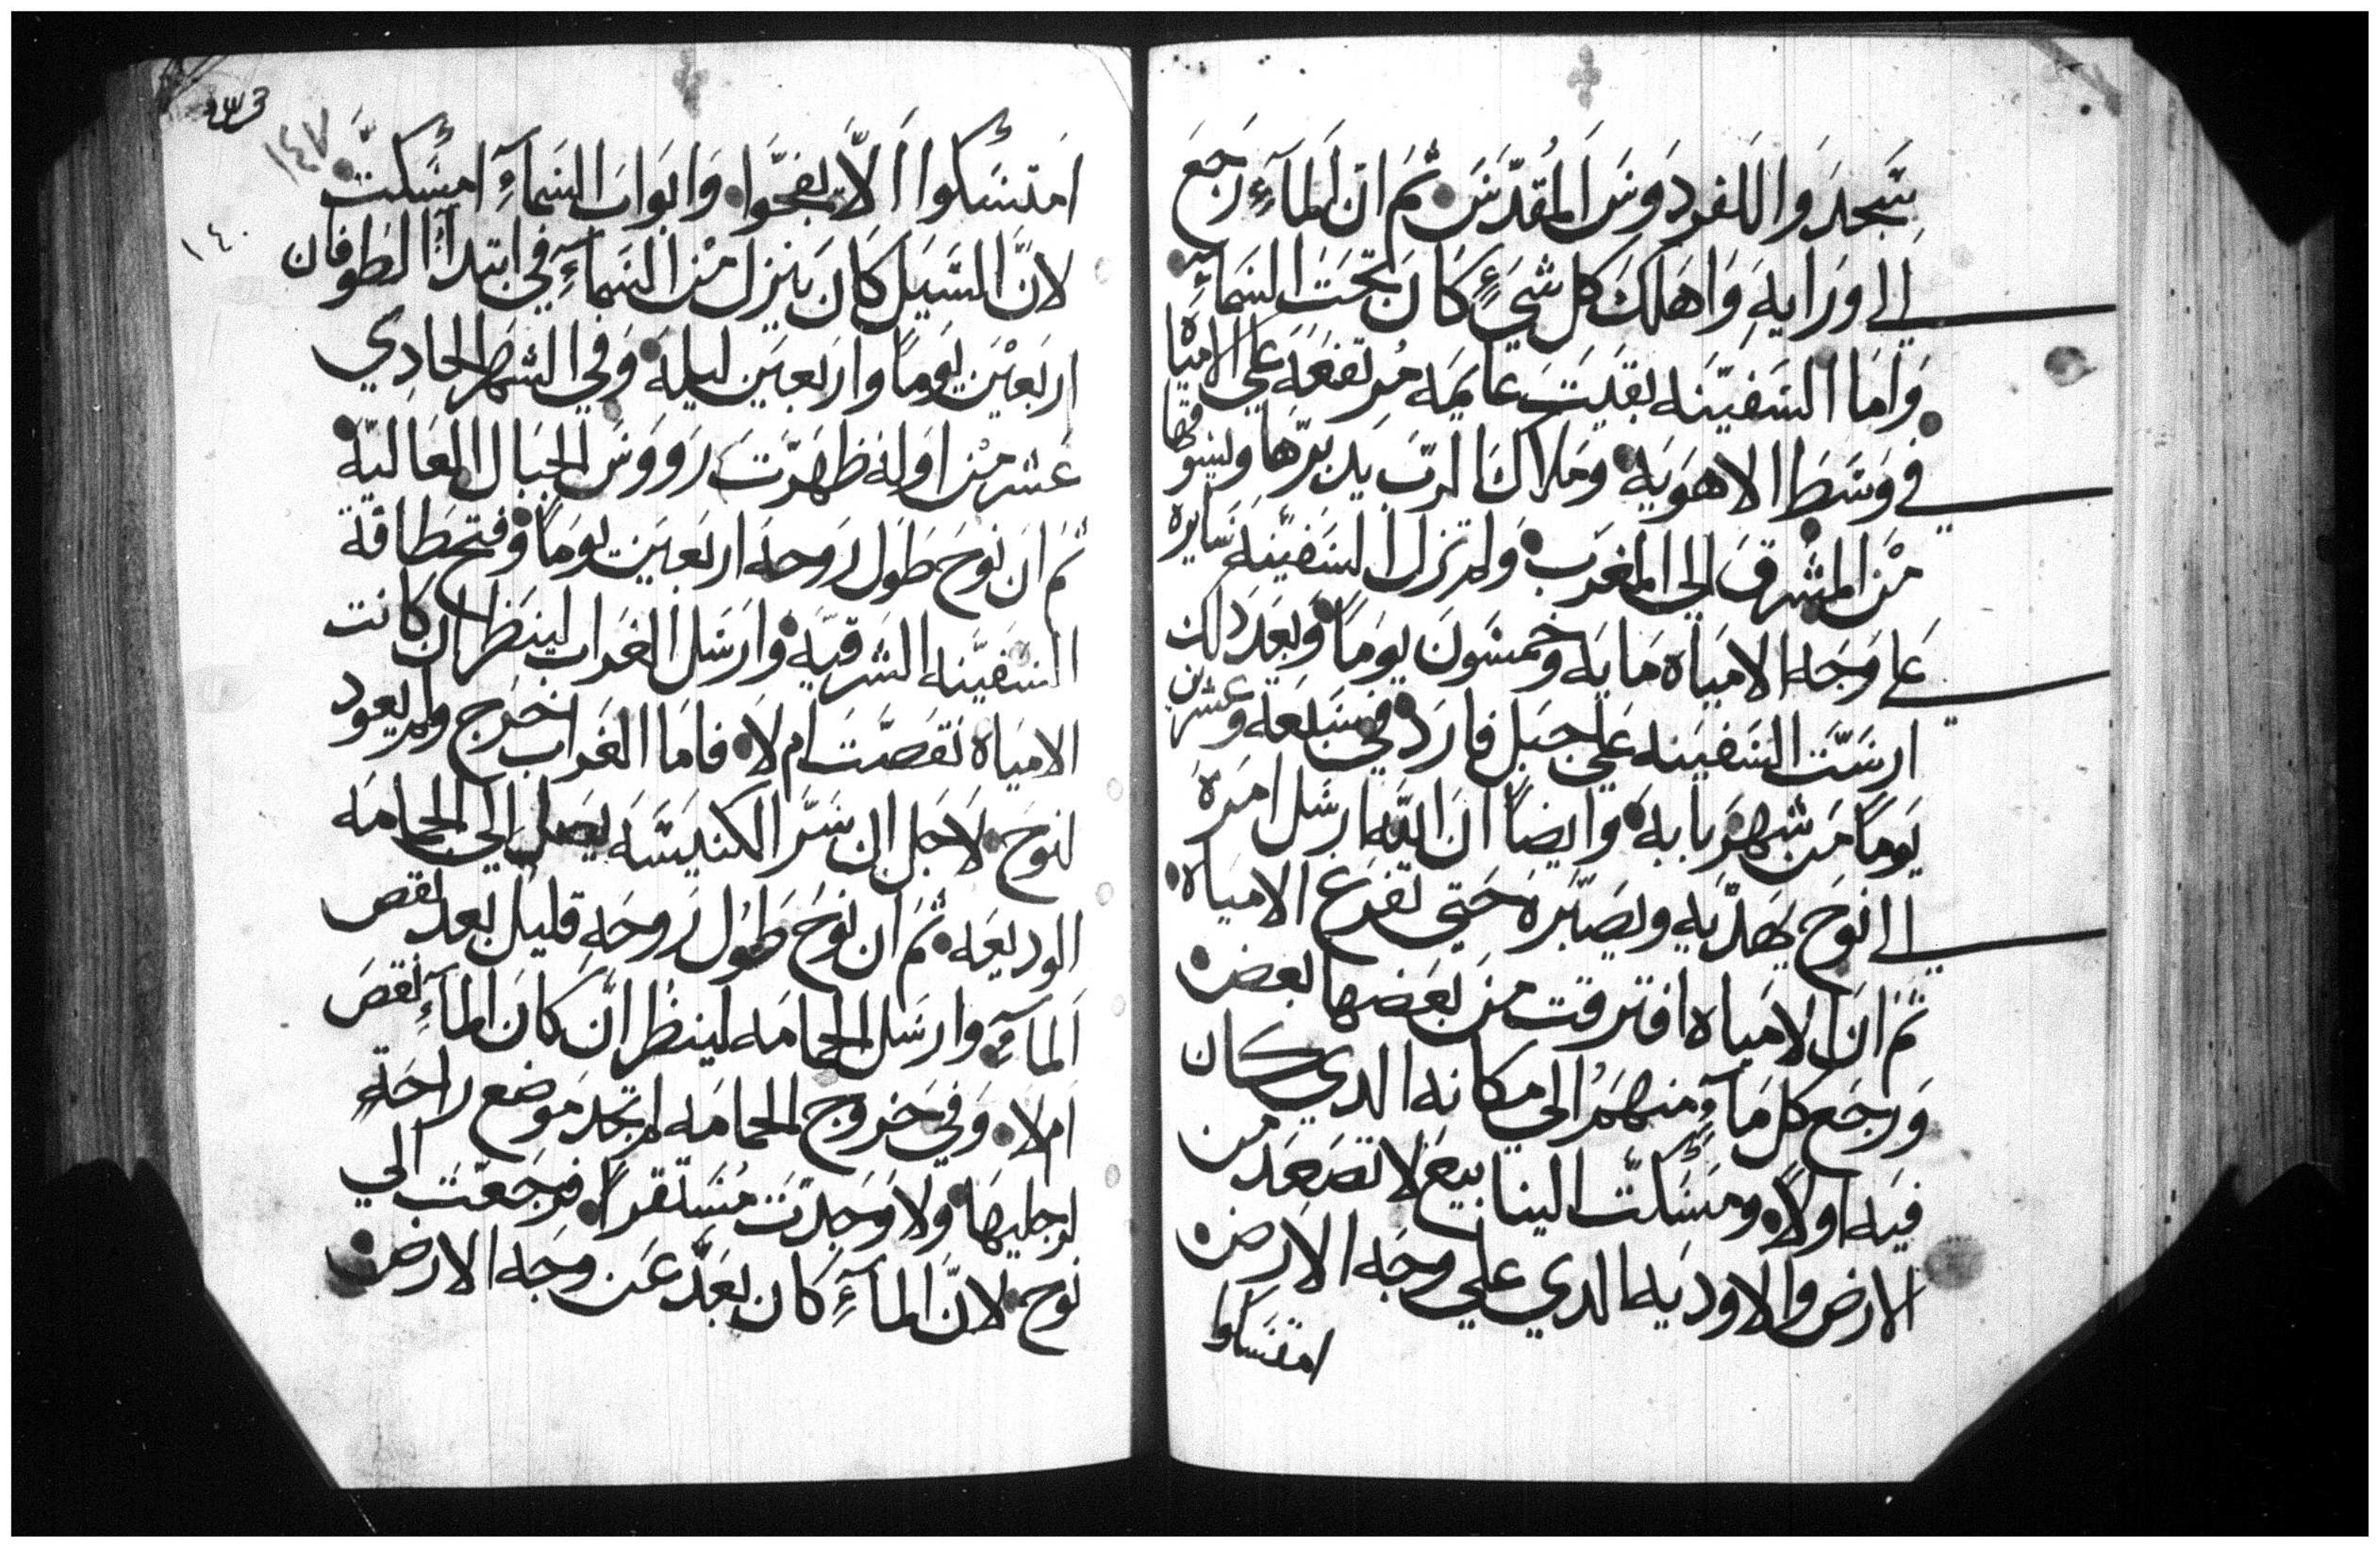 سَجدَوا للفردَوسَ المُقدّسَ ثمَ انّ المآءِ رَجَعَ
الى وَرايهِ وَاهَلكَ كل شيءٍ كانَ تحَتَ السَمآءِ
وَاما السَفيّنه بقيَت عايمَه مُرتفعَه عَلي الامياه
في وَسَط الاهوَيه وَملاك الربَ يدَبرّها وليسَوقها
مْن المشَرقَ الي المغرَب وَلم تزل السَفيّنه سَايره
عَلي وَجَه الامياه مَايه وخمسَونَ يومَاً وَبعَدَ دلك
ارسَت السَفيَنه عَلي جبَل قارَدَ في سَبَعه وعشرين
يَومَاً مَن شهرَ بابه وَايضاً انَ الله ارسَل امرَه
الي نوَح يَهدّيهِ وَيصَبّرَهُ حَتي تفرَغ الامَياه
ثمَ انَ الامَياه افترقت مَن بعَضها بعض
وَرجَع كل مَآءٍ منهمَ الي مكانه الدي كان
فيَه اولاً ومَسَكتَ الينابيعَ لا تصَعَد من
الارض والاوديَه الدي علي وجَه الارض
امتسَكوا
٢٣٩
١٤٧
١٤٠
امَتسَكوا الاّ يفتحَوا وَابوَابَ السَمآءِ امسَكتّ
لانّ السَيَل كانَ ينزل مْن السَمآءِ في ابتدآءَ الطوفان
اربَعيْن يَومَاً واربعَيَن ليلهَ وَفي الشهرَ الحادِي
عَشر مْن اوَله ظهَرّتَ روَوَسَ الجبَال العَاليّهَ
ثمَ انَ نوَحَ طوَل رَوحَه اربَعيَن يومَاً وَفتحَ طاقة
السَفيَّنه الشَرقيّه وَارسَل الغرَاب لينظَر ان كانت
الامَياه نقصَتَ ام لاَ فامَا الغرَاب خرَج ولم يعود
لنوَح لاَجَل ان سَرّ الكنيسَه يصل الي الحمامَه
الوديعَه ثمَ ان نوَحَ طوُل رَوحَهِ قليل بعد نقص
المآءِ وارسَل الحمامَه لينظُر انّ كانَ المآءِ نقصَ
ام لا وَفي خرَوج الحمامَه لم تجد مَوضع راحَةٍ
لرجليهَا ولا وَجَدتَ مُسَتقراً فرجَعتَ الي
نوح لانّ المآءِ كان بعَدّ عَن وجَه الارض